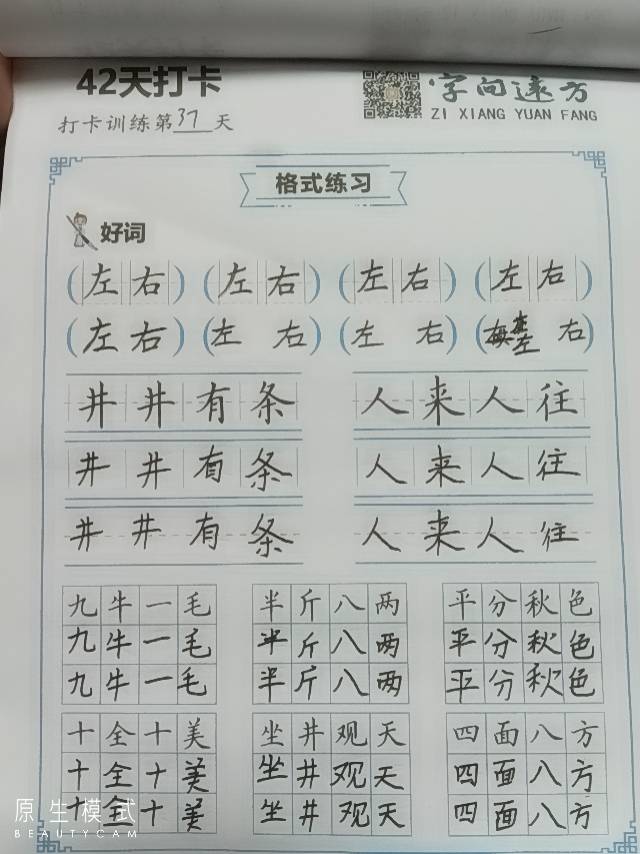 42天打卡
字向远方
ZI XIANG YUAN FANG
打卡训练第37天
格式练习
好词
(左右) (左右) (左右) (左右)
(左右) (左 右) (左 右) (左 右)
井井有条 人来人往
井井有条 人来人往
井井有条 人来人往
九牛一毛 半斤八两 平分秋色
九牛一毛 半斤八两 平分秋色
九牛一毛 半斤八两 平分秋色
十全十美 坐井观天 四面八方
十全十美 坐井观天 四面八方
十全十美 坐井观天 四面八方
原生模式
BEAUTYCAM